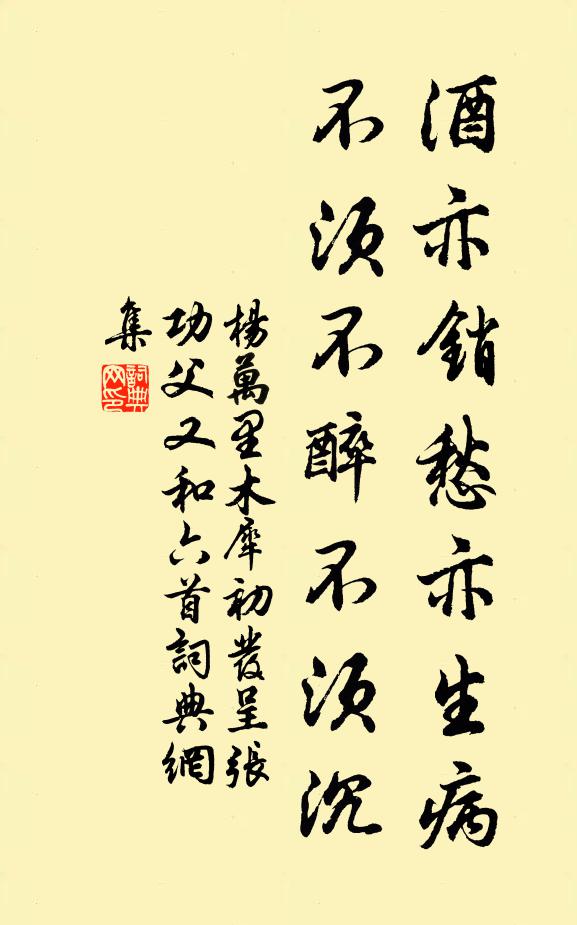 酒亦銷愁亦生病
不須不醉不須沉
楊萬里木犀初發呈張
功父又和六首詞典網
集
詞典
网印